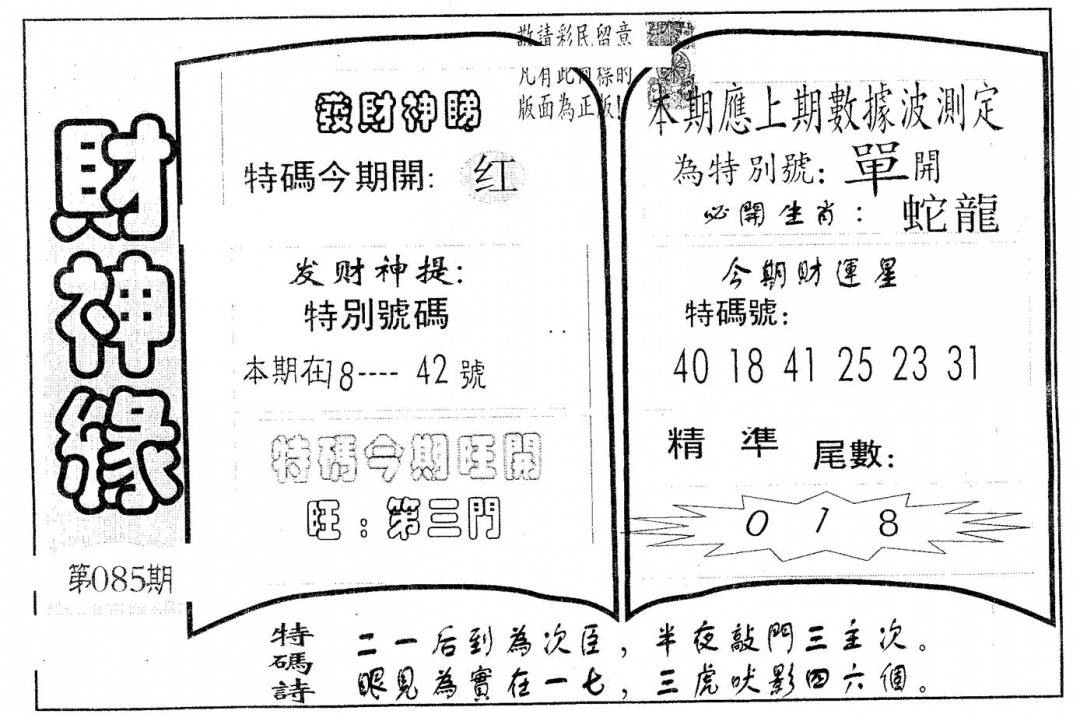 敬請彩民留意
凡有此同樣的
版面為正版!
財神緣
第085期
發財神睇
特碼今期開: 红
发财神提:
特別號碼
本期在18---- 42號
特碼今期旺開
旺:第三門
本期應上期數據波測定
為特別號: 單開
必開生肖: 蛇龍
今期財運星
特碼號:
40 18 41 25 23 31
精 準 尾數:
0 1 8
特碼詩
二一后到為次臣,半夜敲門三主次。
眼見為實在一七,三虎吠影四六個。